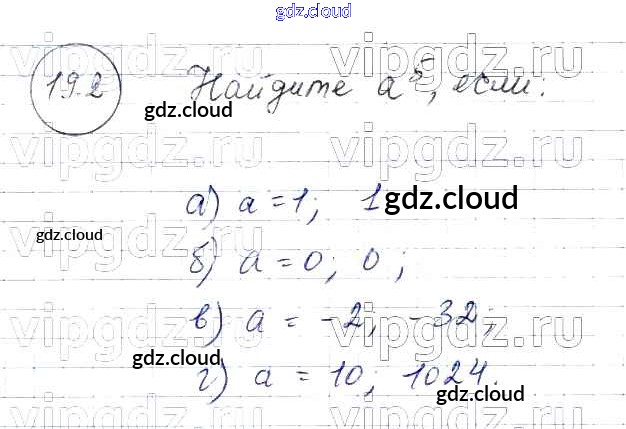 gdz.cloud
19.2 Найдите a⁵, если:
gdz.cloud
vipgdz.ru
vipgdz.ru
vipgdz.ru
gdz.cloud
а) a = 1; 1 gdz.cloud
vipgdz.ru
gdz.cloud
б) a = 0; 0;
в) a = -2; -32;
vipgdz.ru
gdz.cloud
г) a = 10; 1024.
gdz.cloud
vipgdz.ru